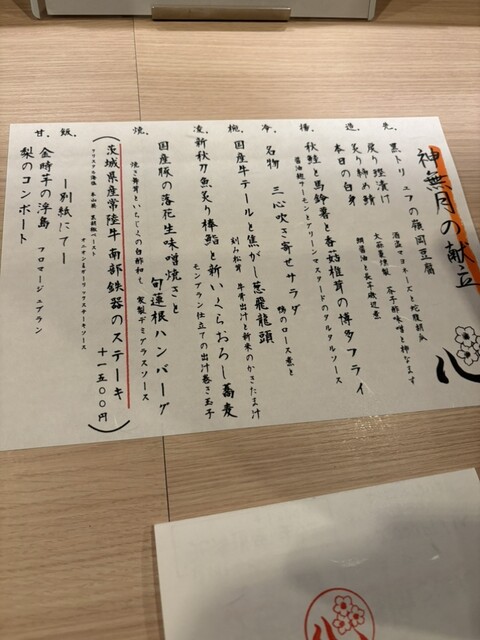 神無月の献立
先.
黒トリュフの嶺岡豆腐
酒盗マヨネーズと蛇腹胡瓜
戻り鰹漬け
大蒜葱燻製 芥子酢味噌と柿なます
造.
炙り締め鯖
鯛醤油と長芋磯辺煮
本日の白身
揚.
秋鮭と馬鈴薯と香菇椎茸の博多フライ
醤油麹サーモン・グリーンマスタードのタルタルソース
冷.
名物 三心吹き寄せサラダ
鴨のロース煮と
椀.
国産牛テールと焦がし葱飛龍頭
刻み松茸 牛骨出汁と新米のかきたま汁
凌.
新秋刀魚炙り棒鮨と新いくらおろし蕎麦
モンブラン仕立ての出汁巻き玉子
焼.
国産豚の落花生味噌焼きと 旬蓮根ハンバーグ
焼き舞茸といちじくの白酢和え 家製デミグラスソース
(茨城県産常陸牛 南部鉄器のステーキ 十一五〇〇円)
飯.
ー別紙にてー
甘.
金時芋の浮島 フロマージュブラン
梨のコンポート
心